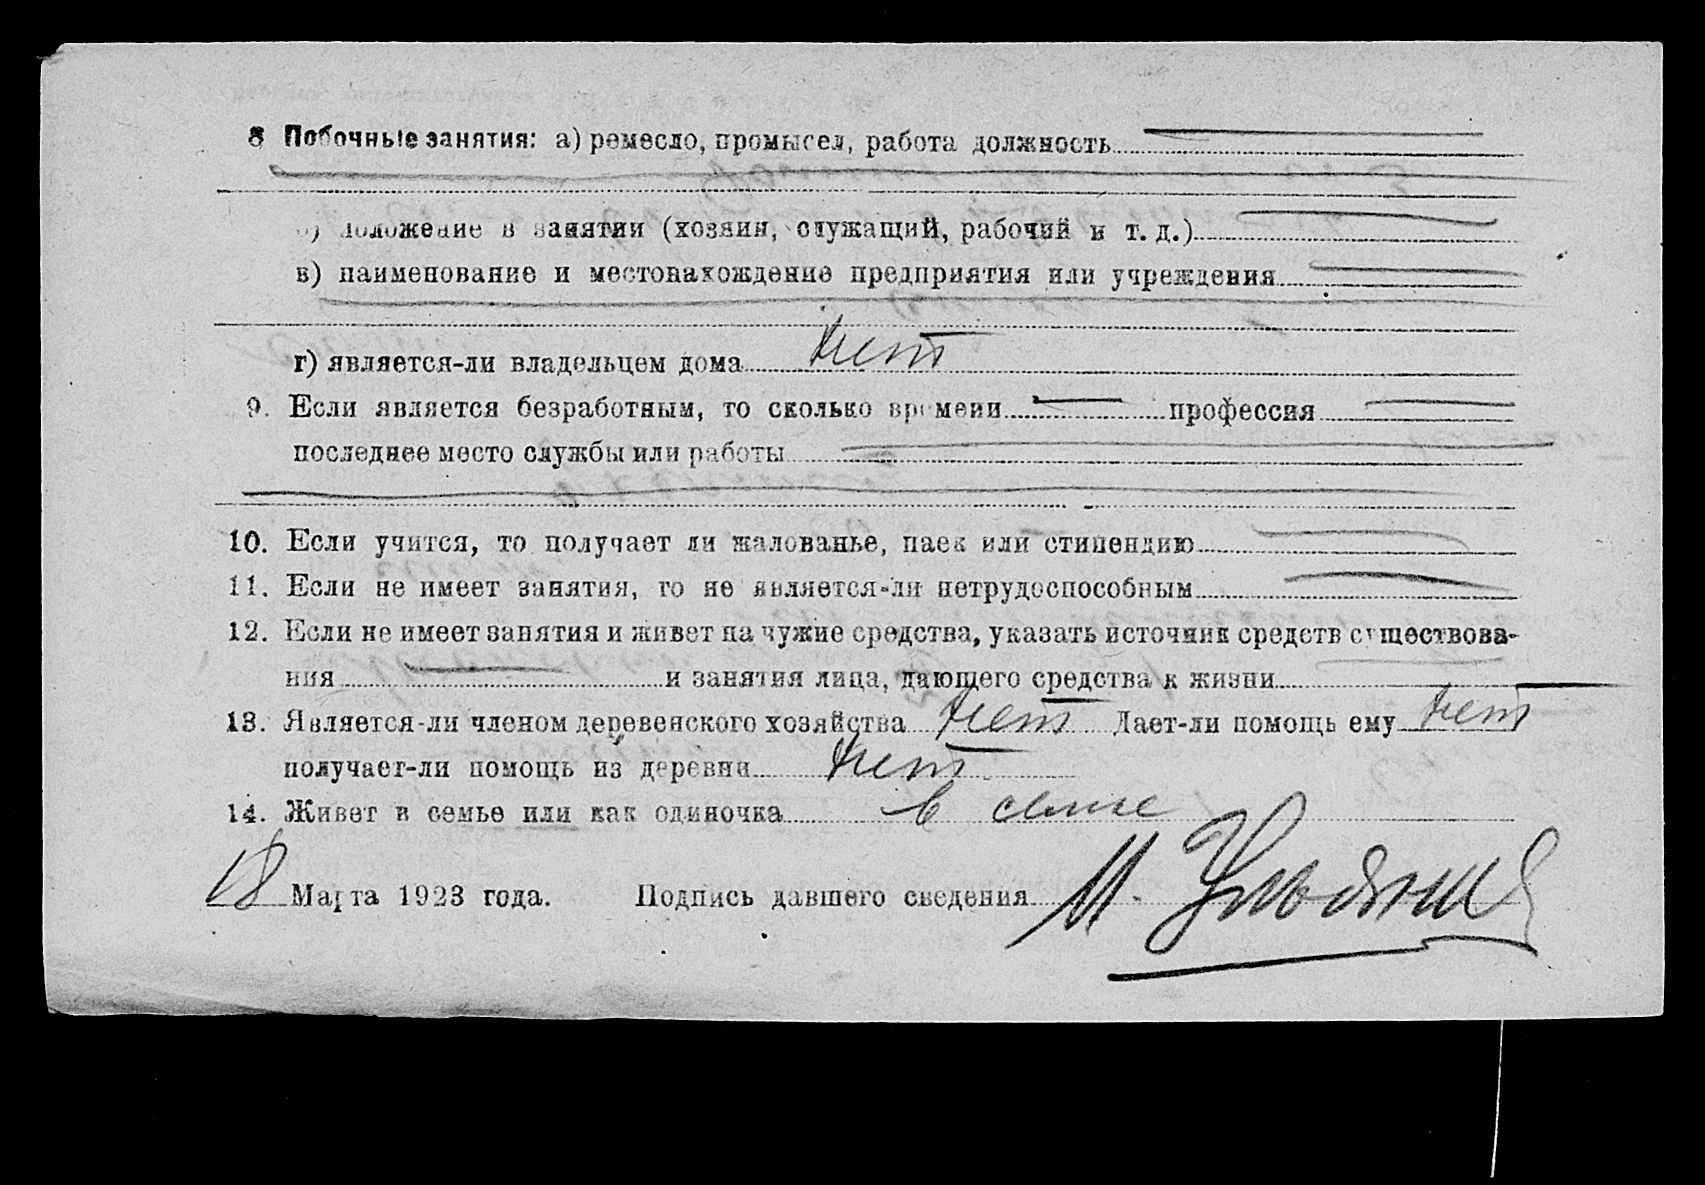 8 Побочные занятия: а) ремесло, промысел, работа должность
б) положение в занятии (хозяин, служащий, рабочий и т. д.)
в) наименование и местонахождение предприятия или учреждения
г) является-ли владельцем дома нет
9. Если является безработным, то сколько времени профессия
последнее место службы или работы
10. Если учится, то получает ли жалованье, паек или стипендию
11. Если не имеет занятия, то не является-ли нетрудоспособным
12. Если не имеет занятия и живет на чужие средства, указать источник средств существова-
ния и занятия лица, дающего средства к жизни
13. Является-ли членом деревенского хозяйства нет Дает-ли помощь ему нет
получает-ли помощь из деревни нет
14. Живет в семье или как одиночка в семье
18 Марта 1923 года. Подпись давшего сведения М.